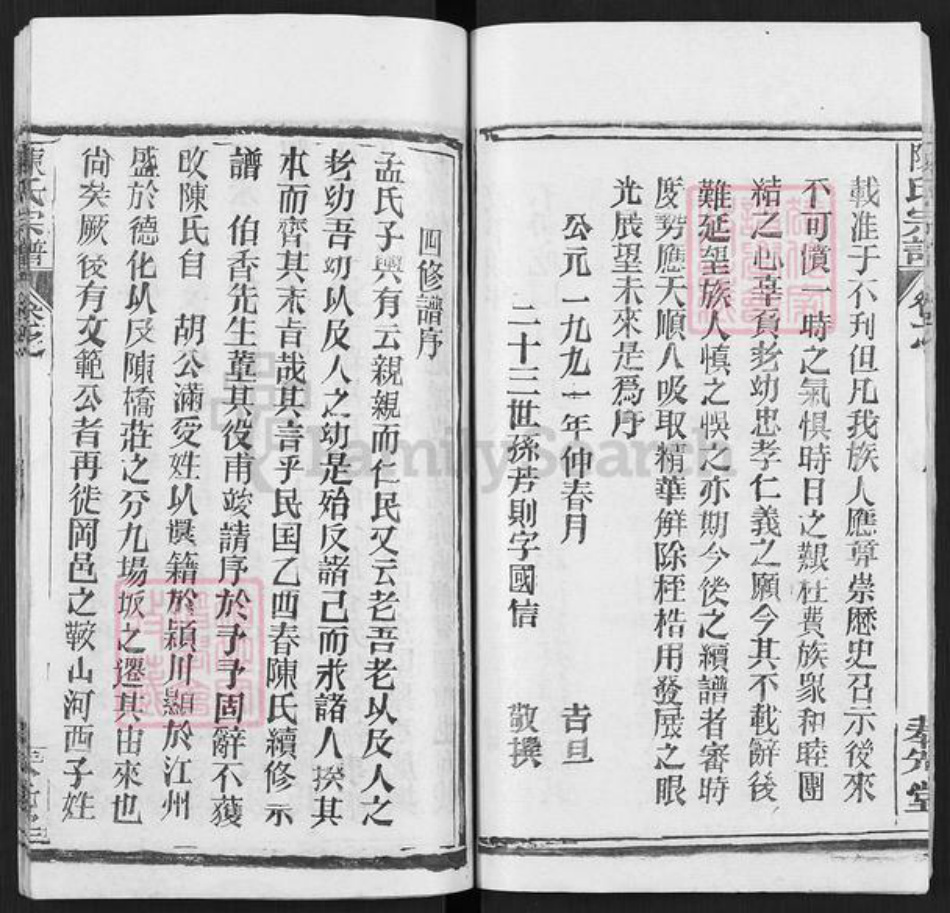 載准于不刊但凡我族人應尊崇歷史召示後來
不可償一時之氣惧時日之艱枉費族眾和睦團
結之心辜負老幼忠孝仁義之願今其不載辭後
難延望族人慎之悮之亦期今後之續譜者審時
度勢應天順人吸取精華解除桎梏用發展之眼
光展望未來是爲序
公元一九九一年仲春月 吉旦
二十三世孫芳則字國信 敬撰
四修譜序
孟氏子輿有云親親而仁民又云老吾老以及人之
老幼吾幼以及人之幼是殆反諸己而求諸人揆其
本而齊其末旨哉其言乎民国乙酉春陳氏續修宗
譜 伯香先生董其役甫竣請序於予予固辭不獲
攷陳氏自 胡公滿受姓以異籍於潁川顯於江州
盛於德化以及陳橋莊之分九場坂之遷其由來也
尙矣厥後有文範公者再徙岡邑之鞍山河西子姓
陳氏宗譜
陳氏宗譜
FamilySearch